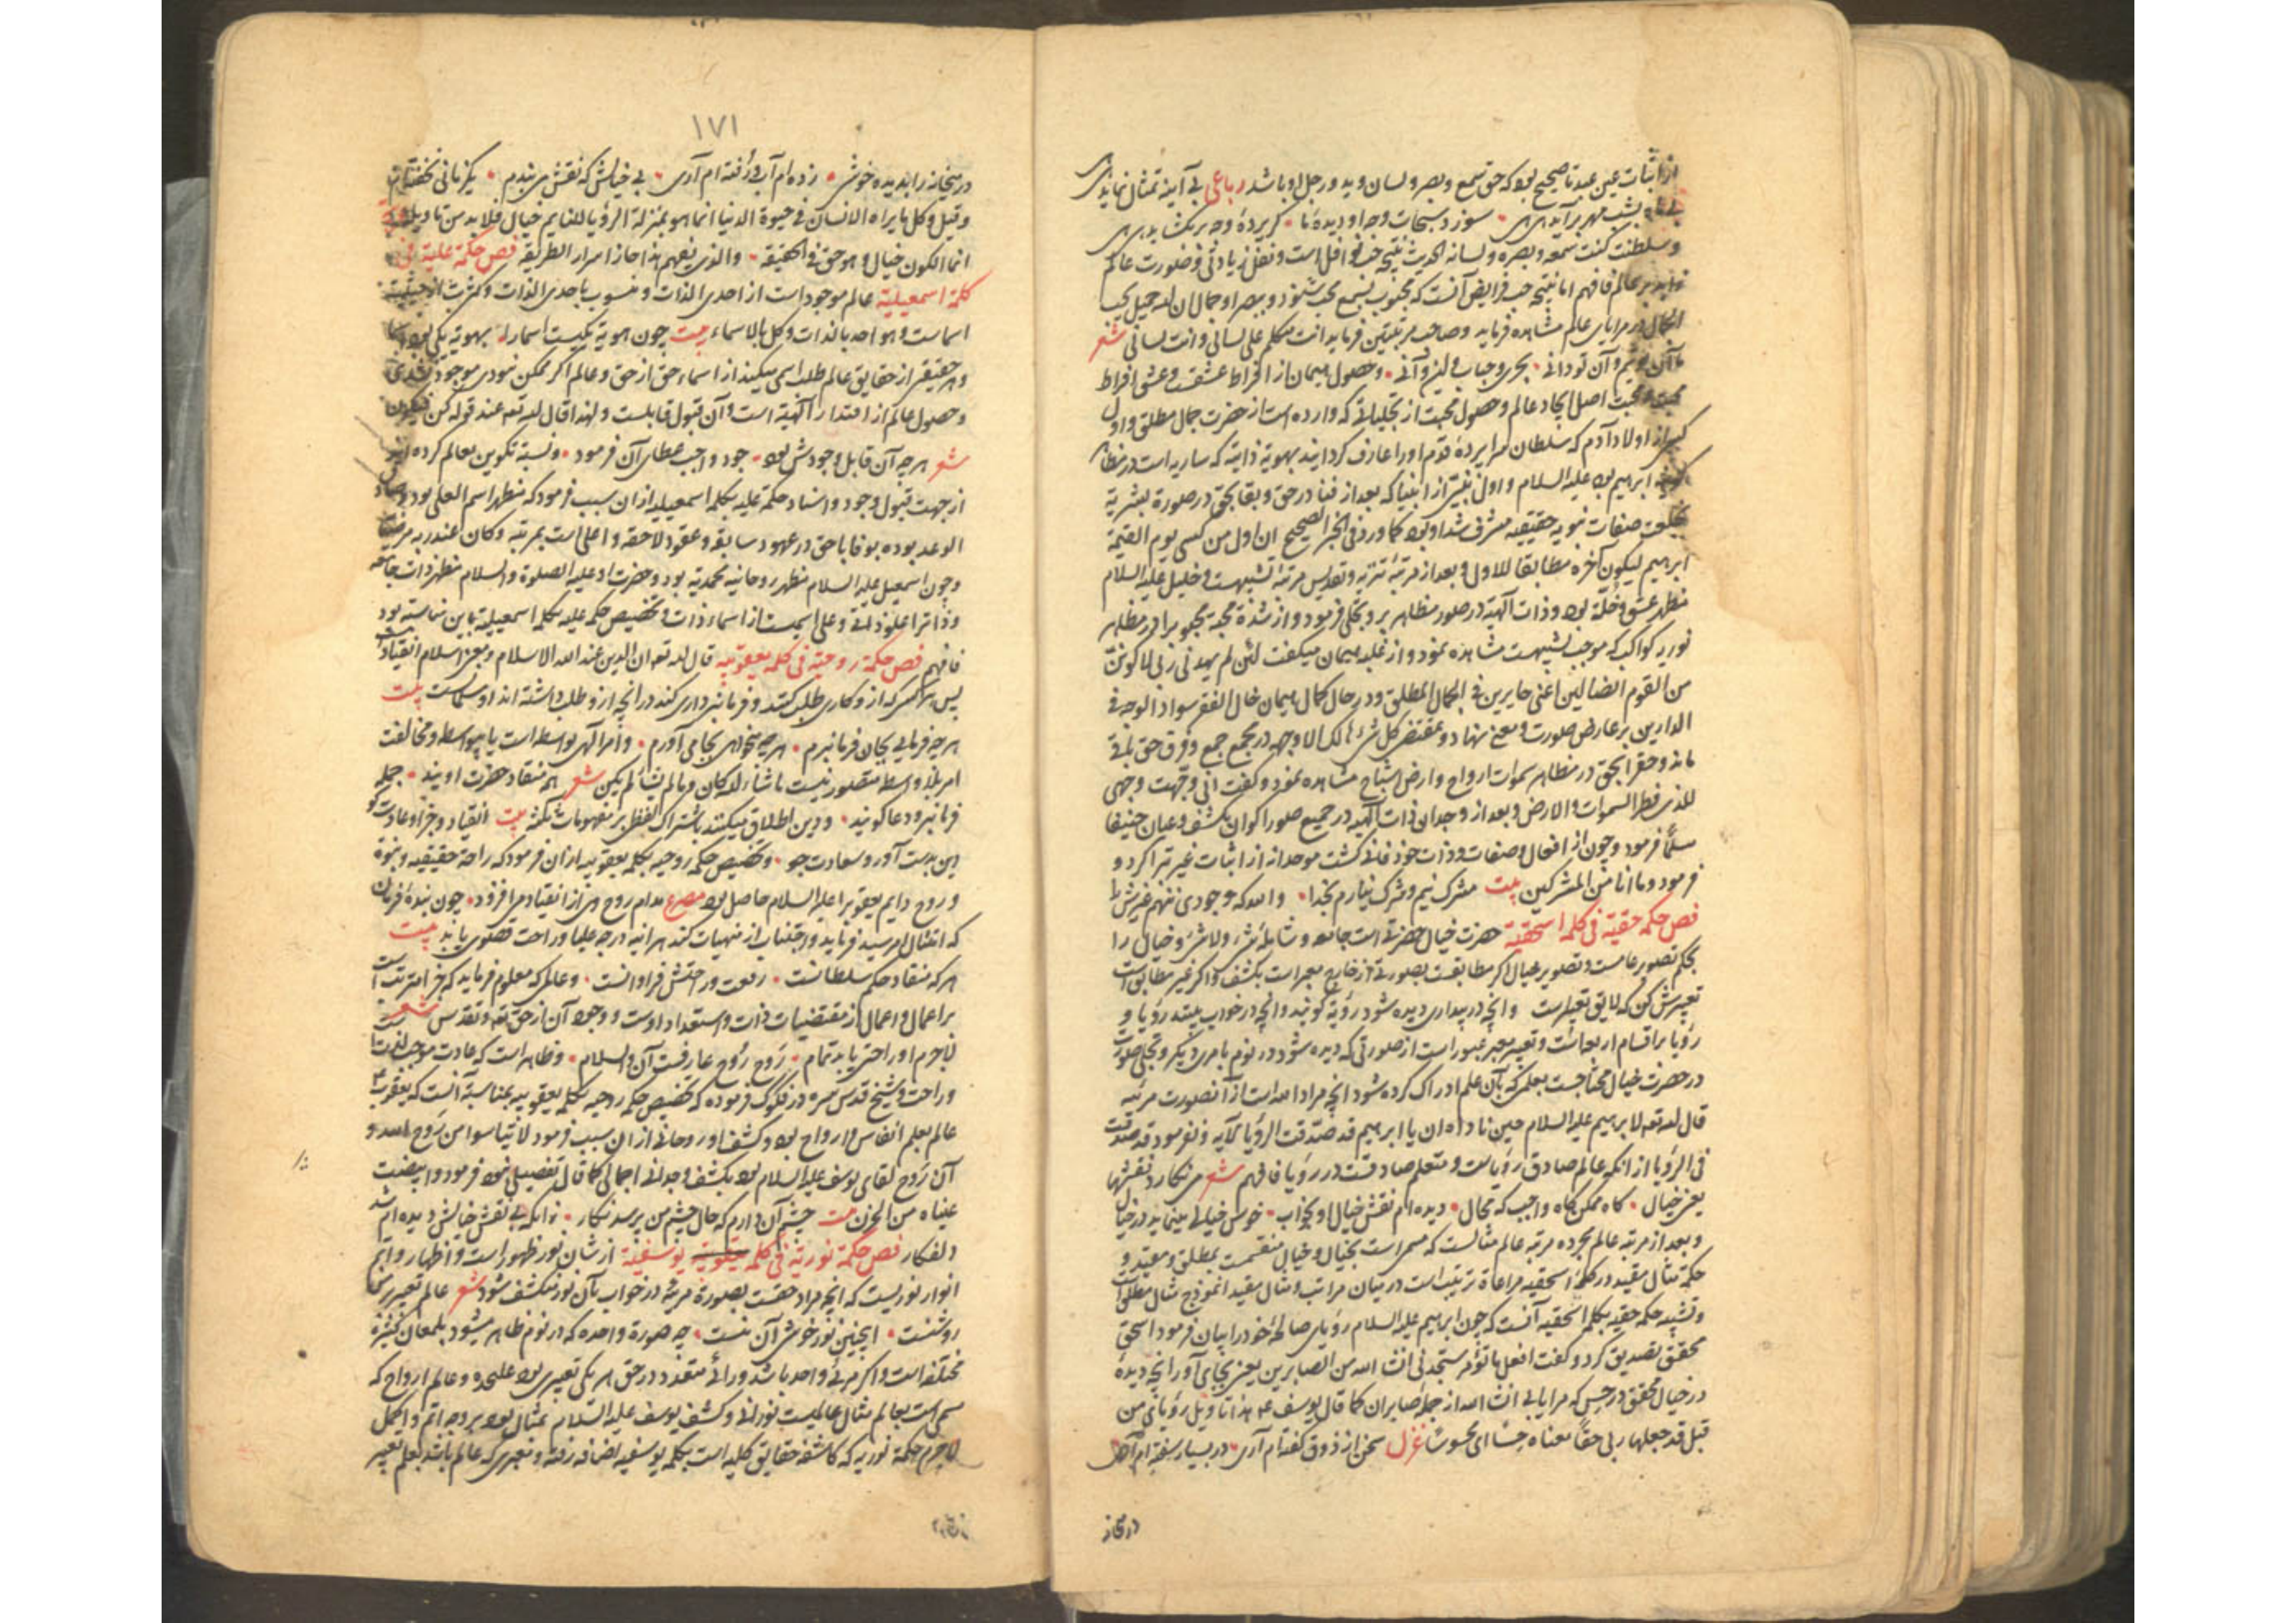 از اثبات عین عبد تا صحیح بود که حق سمع و بصر و لسان و ید و رجل او باشد رباعی بی آینه تمثال نماید
بشب مهر برآید سوزد سبحات وجه او دیده ما گر پرده وجه برگشاید
و سلطنت کنت سمعه و بصره و لسانه الحدیث نتیجه حب نوافل است و نفل زیادتی و صورت عالم
زاید بر عالم فافهم اما نتیجه حب فرایض آنست که محبوب بسمع محب شنود و ببصر او جمال ان الله جمیل یحب
الجمال در مرایای عالم مشاهده فرماید و صاحب مرتبتین فرماید انت متکلم علی لسانی و انت لسانی شعر
و آن تو دانی بحری و حباب و این و آنی و حصول هیمان از افراط عشقست و عشق افراط
محبت و محبت اصل ایجاد عالم و حصول محبت از تجلیاتی که وارده است از حضرت جمال مطلق و اول
کسی از اولاد آدم که سلطان سراپرده قدم او را عارف گردانید بهویة ذاتیه که ساریه است در مظاهر
ابراهیم بود علیه السلام و اول نبیی از انبیا که بعد از فنا در حق و بقا بحق در صورة بشریة
بخلعت صفات ثبوتیه حقیقیه مشرف شد او بود کما ورد فی الخبر الصحیح ان اول من کسی یوم القیمة
ابرهیم لیکون آخره مطابقا للاول و بعد از مرتبه تنزیه و تقدیس مرتبه تشبیهست و خلیل علیه السلام
مظهر عشق و خلّة بود و ذات الهیّة در صور مظاهر برو تجلی فرمود و از شدة محبة محبوب را در مظاهر
نوریه کواکب که موجب تشبیهست مشاهده نمود و از غلبه هیمان میگفت لئن لم یهدنی ربی لاکوننّ
من القوم الضالین اعنی حایرین فی الجمال المطلق و در حال کمال هیمان خال الفقر سواد الوجه فی
الدارین بر عارض صورت و معنی نهاد و بمقتضی کل شیء هالک الا وجهه در مجمع جمع و فرق حق باقی
ماند و حق را بحق در مظاهر سموات ارواح و ارض اشباح مشاهده نمود و گفت انی وجهت وجهی
للذی فطر السموات والارض و بعد از وجدان ذات الهیه در جمیع صور اکوان بکشف و عیان حنیفا
مسلمًا فرمود و چون از افعال و صفات و ذات خود فانی گشت موحدانه از اثبات غیر تبرا کرد و
فرمود و ما انا من المشرکین بیت مشرک نیم و شرک نیارم بخدا والله که وجودی ننهم غیرش را
فص حکمة حقیّة فی کلمة اسحقیّة حضرت خیال حضرتی است جامعه و شامله شیء ولا شیء و خیال را
بحکم تصویر عامست و تصویر خیال اگر مطابقست بصورتی از خارج معبر است بکشف و اگر غیر مطابق است
تعبیرش کن که لایق تعبیرست و آنچه در بیداری دیده شود رؤیة گویند و آنچه در خواب بینند رؤیا و
رؤیا بر اقسام اربعه است و تعبیر معبر عبور است از صورتی که دیده شود در نوم بامری دیگر و تجلی صورت
در حضرت خیال محتاجست بعلمی که بآن علم ادراک کرده شود آنچه مراد الله است از آن صورت مرئیه
قال الله تعه لابرهیم علیه السلام حین ناداه ان یا ابرهیم قد صدّقت الرؤیا الآیه و نفرمود قد صدقت
فی الرؤیا از آنکه عالم صادق رؤیاست و متعلم صادقست در رؤیا فافهم شعر می نگارد نقشها
یعنی خیال گاه ممکن گاه واجب که محال دیده ام نقش خیال او بخواب خوش خیالی مینماید در خیال
و بعد از مرتبه عالم مجرده مرتبه عالم مثالست که مسمی است بخیال و خیال منقسمست بمطلق و مقید و
حکمة مثال مقید در کلمهٔ اسحقیه مراعاة ترتیب است در میان مراتب و مثال مقید انموذج مثال مطلق است
و تشیید حکمه حقیه بکلمه اسحقیه آنست که چون ابراهیم علیه السلام رؤیای صالحهٔ خود را بیان فرمود اسحق
محقق تصدیق کرد و گفت افعل ما تؤمر ستجدنی ان شاء الله من الصابرین یعنی بجای آور آنچه دیدهٔ
در خیال محقق در حس که مرا یابی ان شاء الله از جمله صابران کما قال یوسف عم هذا تاویل رؤیای من
قبل قد جعلها ربی حقًا معناه حسًا ای محسوسًا غزل سخن از ذوق گفته ام آری در بسیار سفته ام آری
در میخانه
۱۷۱
در میخانه را بدیده خوش زده ام آب و رفته ام آری بی خیالش که نقش می بندم یکزمانی نخفته ام
و قیل و کل ما یراه الانسان فی حیوة الدنیا انما هو بمنزلة الرؤیا للنایم خیال فلا بد من تاویله
انما الکون خیال و هو حق فی الحقیقه والذی یفهم هذا حاز اسرار الطریقه فص حکمة علیة فی
کلمة اسمعیلیة عالم موجود است از احدی الذات و منسوب باحدی الذات و کثرت از حیثیت
اسماست و هو احد بالذات و کل بالاسماء بیت چون هویة یکیست اسما را بهویة یکی بود اسما
و هر حقیقتی از حقایق عالم طلب اسمی میکنند از اسماء حق از حق و عالم اگر ممکن نبودی موجود نشدی
و حصول عالم از اقتدار الهیه است و آن قبول قابلست و لهذا قال الله تعه عند قوله کن فیکون
شعر هر چه آن قابل وجودش بود جود واجب عطای آن فرمود و نسبة تکوین بعالم کرده
از جهت قبول وجود و اسناد حکمة علیه بکلمه اسمعیلیه از آن سبب فرمود که مظهر اسم العلی بود و صادق
الوعد بوده بوفا با حق در عهود سابقه و عقود لاحقه و اعلی است بمرتبه و کان عند ربه مرضیا
و چون اسمعیل علیه السلام مظهر روحانیه محمدیه بود و حضرت او علیه الصلوة والسلام مظهر ذات جامعه
و ذات را علو ذاتی و علی اسمیست از اسماء ذات و تخصیص حکمه علیه بکلمه اسمعیلیة باین مناسبة بود
فافهم فص حکمة روحیّة فی کلمه یعقوبیه قال الله تعه ان الدین عند الله الاسلام و معنی اسلام انقیاد است
پس هر کس که ازو کاری طلب کنند و فرمان برداری کند در آنچه ازو طلب داشته اند او مسلمست بیت
هر چه فرمائی بجان فرمان برم هر چه میخواهی بجا می آورم و امر الهی بواسطه است یا بیواسطه و مخالفت
امر بلا واسطه متصور نیست ما شاء الله کان و ما لم یشأ لم یکن شعر هم منقاد حضرت اویند جمله
فرمانبر و دعا گویند و دین اطلاق میکنند باشتراک لفظی بر مفهومات ثلثه بیت انقیاد و جزا و عادت گو
دین بدست آور و سعادت جو و تخصیص حکمه روحیه بکلمه یعقوبیه از آن فرمود که راحة حقیقیه و بنوة
و روح دایم یعقوب را علیه السلام حاصل بود مصرع مدام روح وی از انقیاد می افزود چون بندهٔ فرمان
که امتثال امر سید فرماید و اجتناب از منهیات کند هر آینه درجه علیا و راحت قصوی یابد بیت
هر که منقاد حکم سلطانست رفعت و راحتش فراوانست و عالمی که معلوم فرماید که جزا مترتبست
بر اعمال و اعمال از مقتضیات ذات و استعداد اوست و وجود آن از حق تعه و تقدس شعر
لاجرم او راحتی یابد تمام رَوح رُوح عارفست آن والسلام و ظاهر است که عادت موجب لذت
و راحت و شیخ قدس سره در فکوک فرموده که تخصیص حکمه روحیه بکلمه یعقوبیه بمناسبة آنست که یعقوب
عالم بعلم انفاس و ارواح بود و کشف او روحانی از آن سبب فرمود لا تیاسوا من رَوح الله و
آن رَوح لقای یوسف علیه السلام بود بکشف وجدانی اجمالی کما قال تفصیلی نمود فرمود وابیضت
عیناه من الحزن بیت چشم آن دارم که حال چشم من پرسد نگار زانکه بی نقش خیالش دیده ام شد
دلفگار فص حکمة نوریّة فی کلمه یوسفیّة از شان نور ظهور است و اظهار و اتم
انوار نوریست که آنچه مراد حقست بصورة مرئیه در خواب بآن نور منکشف شود شعر عالم تعبیر
روشنست اینچنین نور خوشی آن منست چه صورة واحده که در نوم ظاهر میشود بمعانی کثیره
مختلفه است و اگر مرئی واحد باشد و رائی متعدد در حق هر یکی تعبیری بود علیحده و عالم ارواح که
مسمی است بعالم مثال عالمیست نورانی و کشف یوسف علیه السلام مثالی بود بر وجه اتم و اکمل
لاجرم حکمة نوریه که کاشفه حقایق کلیه است بکلمه یوسفیه اضافه رفته و معبری که عالم باشد بعلم تعبیر